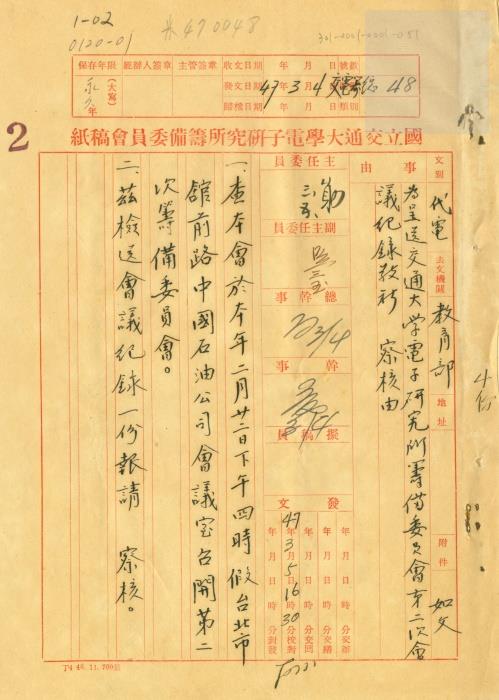 1-02
0120-01
米470048
301-0001-0001-051
保存年限
經辦人簽章
主管簽章
收文日期
年 月 日
號數
永久
(大寫)
年
發文日期
47年3月4
48
歸檔日期
年 月 日
類別
2
國立交通大學電子研究所籌備委員會稿紙
文別
代電
去文機關
教育部
地址
附件
如文
事由
為呈送交通大学電子研究所籌備委員會第二次會
議紀錄敬祈 察核由
4份
主任委員
三.五.
副主任委員
總幹事
3/4
幹事
3/4
擬稿員
發文
年 月 日 時 分交辦
年 月 日 時 分交繕
年 月 日 時 分交回
年 月 日 時 分校對
47年3月5日16時30分封發
一、查本會於本年二月廿二日下午四時假台北市
舘前路中國石油公司會議室召開第二
次籌備委員會。
二、茲檢送會議紀録一份報請 察核。
T4 46. 11. 700張